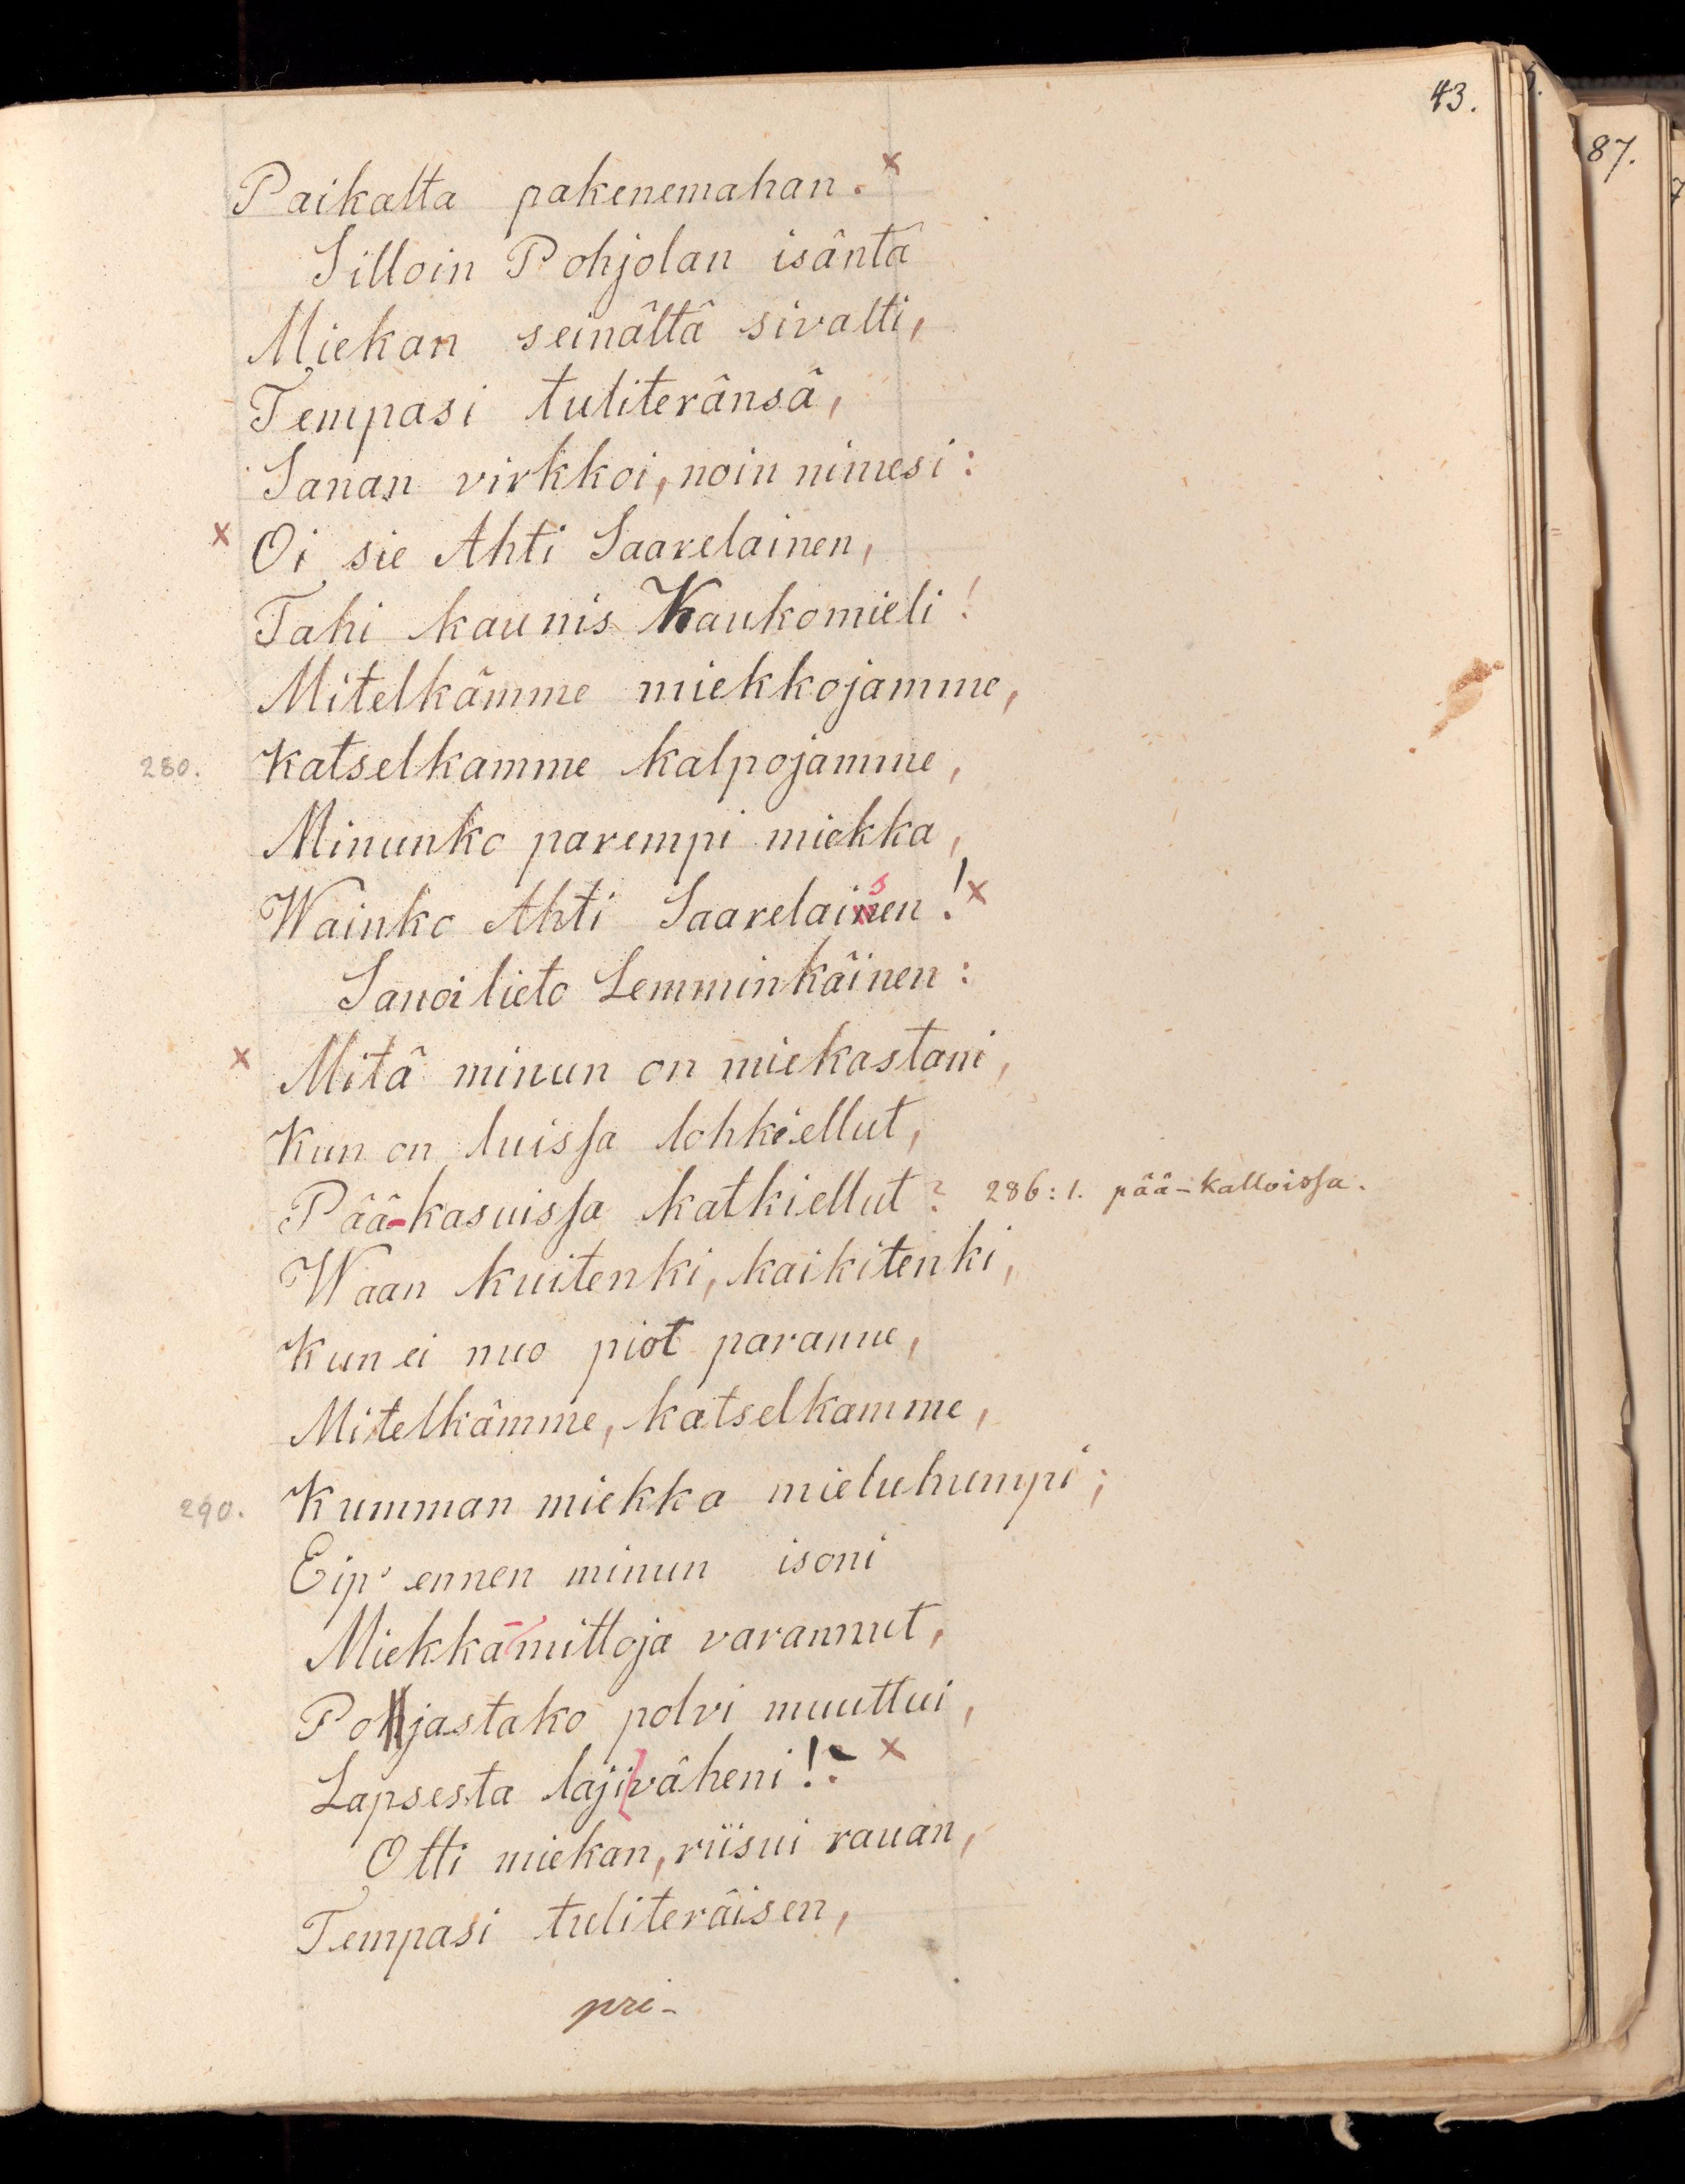 43.
87.
Paikalta pakenemahan. x
Silloin Pohjolan isäntä
Miekan seinältä sivalti,
Tempasi tuliteränsä,
Sanan virkkoi, noin nimesi:
x Oi sie Ahti Saarelainen,
Tahi kaunis Kaukomieli!
Mitelkämme miekkojamme,
280. Katselkamme kalpojamme,
Minunko parempi miekka,
Wainko Ahti Saarelaisen! x
Sanoi lieto Lemminkäinen:
x Mitä minun on miekastani,
Kun on luissa lohkiellut,
Pää-kasuissa katkiellut? 286:1. pää-kalloissa.
Waan kuitenki, kaikitenki,
Kun ei nuo piot paranne,
Mitelkämme, katselkamme,
290. Kumman miekka mieluhumpi;
Eip' ennen minun isoni
Miekka-mittoja varannut,
Pohjastako polvi muuttui,
Lapsesta laji väheni!? x
Otti miekan, riisui rauan,
Tempasi tuliteräisen,
pri-